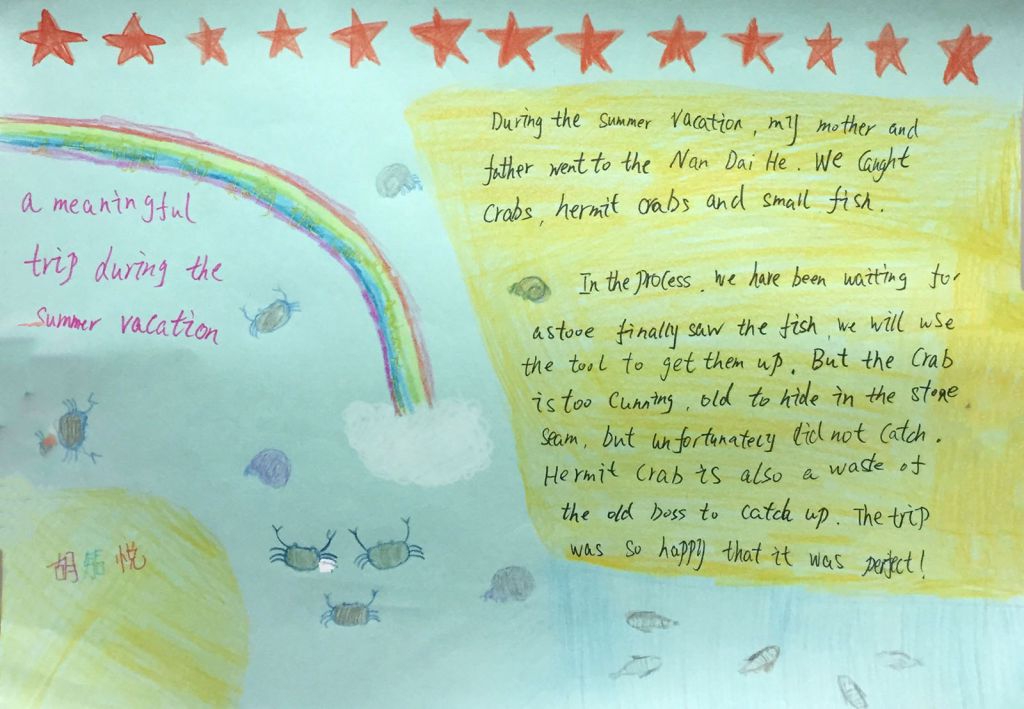 a meaningful
trip during the
summer vacation
During the summer vacation, my mother and
father went to the Nan Dai He. We caught
crabs, hermit crabs and small fish.
In the process, we have been waitting for
astove finally saw the fish, we will use
the tool to get them up. But the crab
is too cunning, old to hide in the stone
seam, but unfortunately did not catch.
Hermit crab is also a waste of
the old boss to catch up. The trip
was so happy that it was perfect!
胡 悦